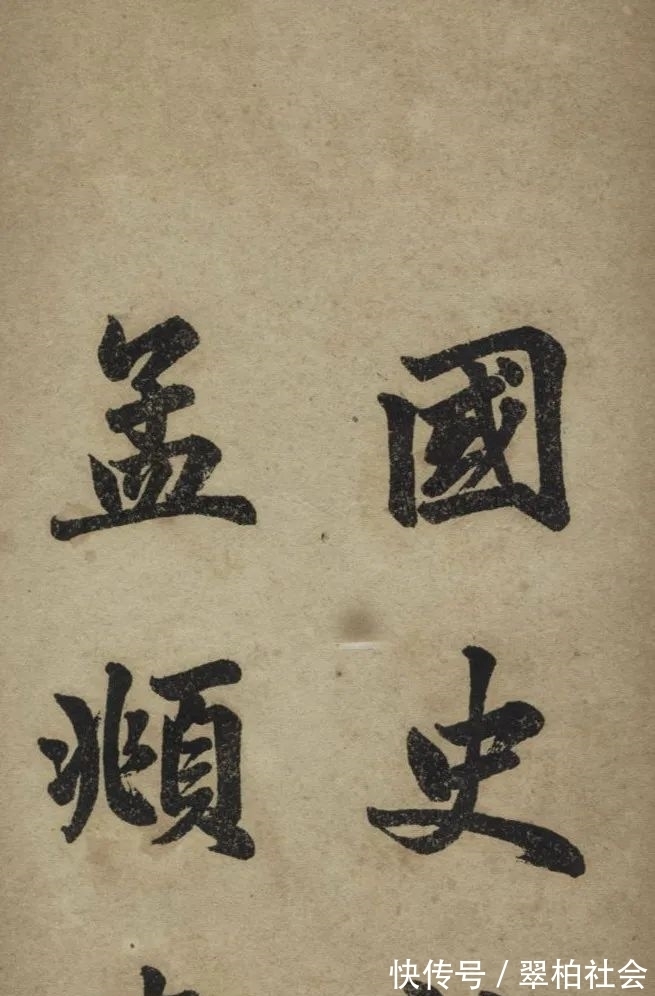 國史
孟頫
快传号/翠柏社会